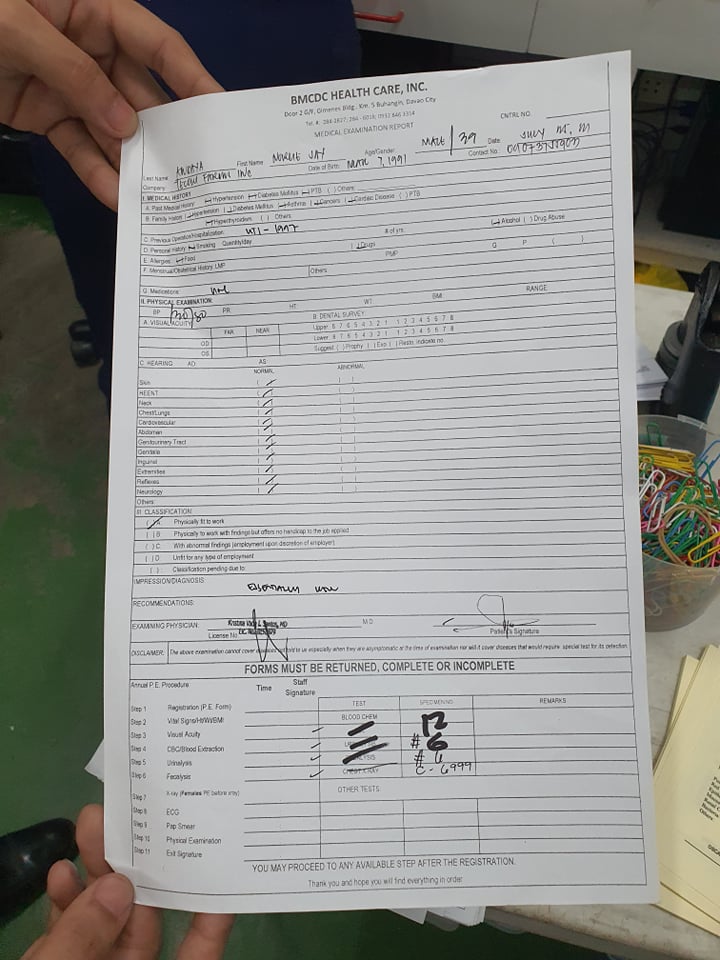 BMCDC HEALTH CARE, INC.
Door 2 G/F, Gimenes Bldg., Km. 5 Buhangin, Davao City
Tel. #: 284-2827; 284 - 6018; 0932 846 3314
MEDICAL EXAMINATION REPORT
CNTRL NO.
Last Name First Name Age/Gender: MALE / 39 Date
Company: INC Date of Birth: MAR 7, 1991 Contact No.:
I. MEDICAL HISTORY
A. Past Medical History Hypertension Diabetes Mellitus PTB ( ) Others:
B. Family History Hypertension Diabetes Mellitus Asthma Cancers Cardiac Disease ( ) PTB
Hyperthyroidism ( ) Others
C. Previous Operation/Hospitalization:
D. Personal History Smoking Quantity/day # of yrs. Alcohol ( ) Drug Abuse
E. Allergies: Food Drugs
F. Menstrual/Obstetrical History: LMP PMP G P ( )
Others
G. Medications:
II. PHYSICAL EXAMINATION:
BP PR: HT: WT: BMI: RANGE
A. VISUAL ACUITY B. DENTAL SURVEY:
FAR NEAR Upper: 8 7 6 5 4 3 2 1 1 2 3 4 5 6 7 8
OD: Lower: 8 7 6 5 4 3 2 1 1 2 3 4 5 6 7 8
OS: Suggest ( ) Prophy ( ) Exo ( ) Resto: Indicate no.
C. HEARING AD: AS:
NORMAL ABNORMAL
Skin ( ) ( )
HEENT ( ) ( )
Neck ( ) ( )
Chest/Lungs ( ) ( )
Cardiovascular ( ) ( )
Abdomen ( ) ( )
Genitourinary Tract ( ) ( )
Genitalia ( ) ( )
Inguinal ( ) ( )
Extremities ( ) ( )
Reflexes ( ) ( )
Neurology ( ) ( )
Others:
III. CLASSIFICATION
( ) A Physically fit to work
( ) B Physically to work with findings but offers no handicap to the job applied
( ) C With abnormal findings (employment upon discretion of employer)
( ) D Unfit for any type of employment
( ) Classification pending due to:
IMPRESSION/DIAGNOSIS:
RECOMMENDATIONS:
EXAMINING PHYSICIAN: M.D.
License No. Patient's Signature
DISCLAIMER: The above examination cannot cover diseases not told to us especially when they are asymptomatic at the time of examination nor will it cover diseases that would require special test for its detection.
FORMS MUST BE RETURNED, COMPLETE OR INCOMPLETE
Annual P.E. Procedure Time Staff Signature
TEST SPECIMENS REMARKS
Step 1 Registration (P.E. Form) BLOOD CHEM 12
Step 2 Vital Signs/Ht/Wt/BMI
Step 3 Visual Acuity
Step 4 CBC/Blood Extraction # 6
Step 5 Urinalysis # 6
Step 6 Fecalysis CHEST X-RAY C - 6999
Step 7 X-ray (Females PE before xray) OTHER TESTS
Step 8 ECG
Step 9 Pap Smear
Step 10 Physical Examination
Step 11 Exit Signature
YOU MAY PROCEED TO ANY AVAILABLE STEP AFTER THE REGISTRATION.
Thank you and hope you will find everything in order